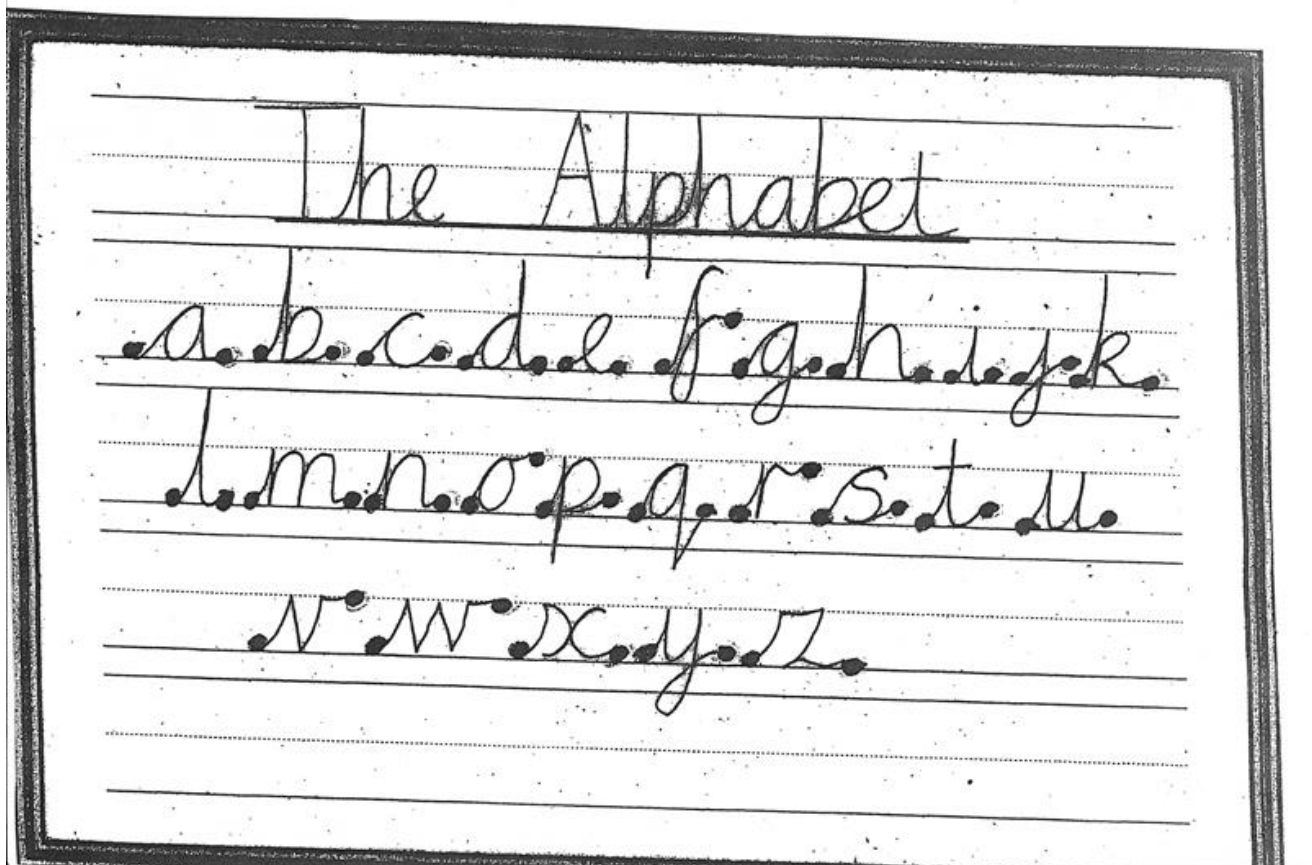 The Alphabet
a b c d e f g h i j k
l m n o p q r s t u
v w x y z